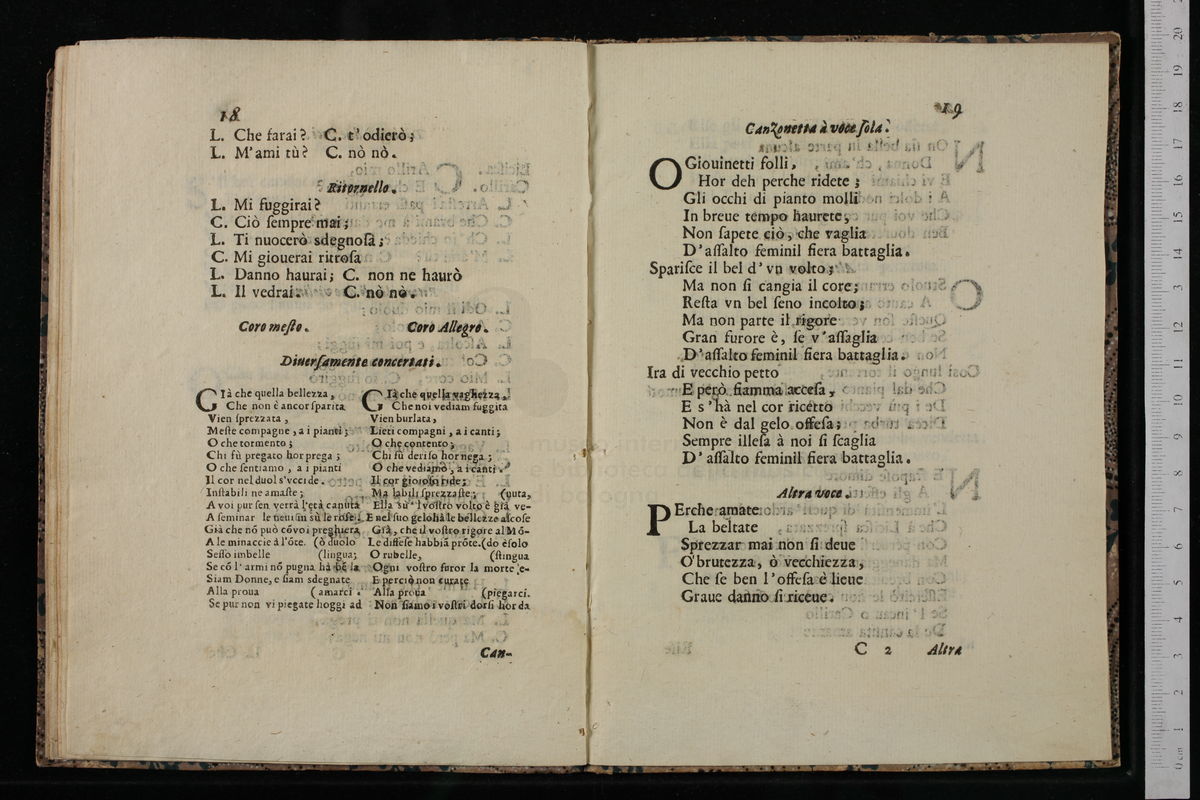 18
L. Che farai? C. t'odierò;
L. M'ami tù? C. nò nò.
Ritornello.
L. Mi fuggirai?
C. Ciò ſempre mai;
L. Ti nuocerò sdegnoſa;
C. Mi giouerai ritroſa
L. Danno haurai; C. non ne haurò
L. Il vedrai. C. nò nò.
Coro meſto. Coro Allegro.
Diuerſamente concertati.
Già che quella bellezza,
Che non è ancor ſparita
Vien ſprezzata,
Meſte compagne, a i pianti;
O che tormento;
Chi fù pregato hor prega;
O che ſentiamo, a i pianti
Il cor nel duol s'vccide.
Inſtabili ne amaſte;
A voi pur ſen verrà l'età canuta
A ſeminar le neui in sù le roſe
Già che nó può cóvoi preghiera
A le minaccie à l'óte. (ò duolo
Seſſo imbelle (lingua;
Se có l'armi nó pugna hà bẽ la
Siam Donne, e ſiam sdegnate
Alla proua (amarci.
Se pur non vi piegate hoggi ad
Già che quella vaghezza,
Che noi vediam fuggita
Vien burlata,
Lieti compagni, a i canti;
O che contento;
Chi fù deriſo hor nega;
O che vediamo, a i canti.
Il cor gioroſo ride;
Ma labili ſprezzaſte; (nuta,
Ella sù 'l voſtro volto è già ve-
E nel ſuo gelo hà le bellezze aſcoſe
Già, che il voſtro rigore al Mó-
Le difféſe habbiã próte. (do èſolo
O rubelle, (ſtingua
Ogni voſtro furor la morte e-
E perciò non curate
Alla proua (piegarci.
Non ſiamo i voſtri dorſi hor da
Can-
19
Canzonetta à voce ſola.
O Giouinetti folli,
Hor deh perche ridete;
Gli occhi di pianto molli
In breue tempo haurete,
Non ſapete ciò, che vaglia
D'aſſalto feminil fiera battaglia.
Spariſce il bel d'vn volto;
Ma non ſi cangia il core;
Reſta vn bel ſeno incolto;
Ma non parte il rigore
Gran furore è, ſe v'aſſaglia
D'aſſalto feminil fiera battaglia.
Ira di vecchio petto
E però fiamma acceſa,
E s'hà nel cor ricetto
Non è dal gelo offeſa;
Sempre illeſa à noi ſi ſcaglia
D'aſſalto feminil fiera battaglia.
Altra voce.
PErche amate
La beltate
Sprezzar mai non ſi deue
O brutezza, ò vecchiezza,
Che ſe ben l'offeſa è lieue
Graue danno ſi riceue.
C 2 Altra